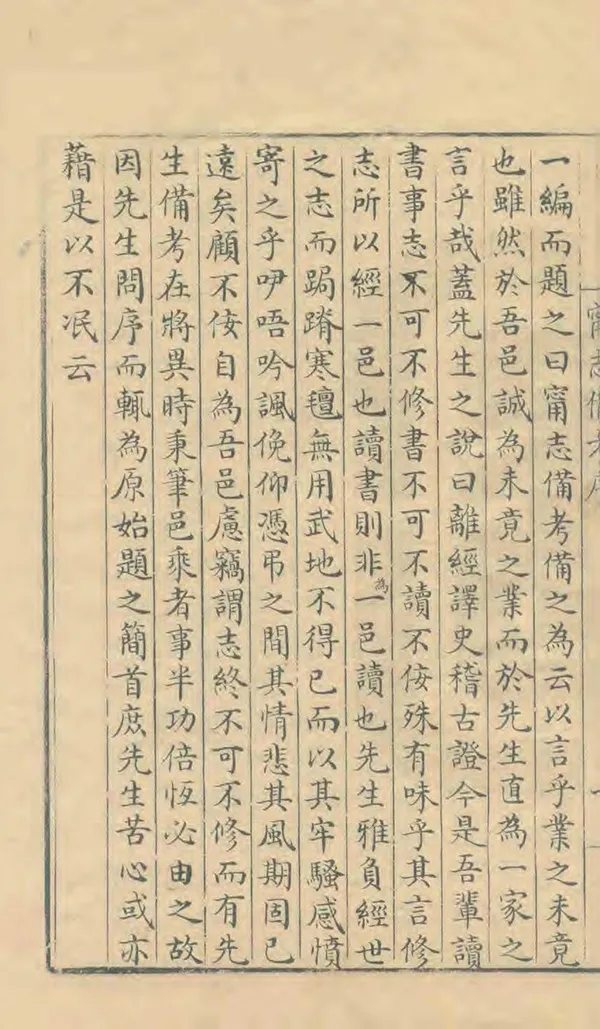 一編而題之曰甯志備考備之為云以言乎業之未竟
也雖然於吾邑誠為未竟之業而於先生直為一家之
言乎哉蓋先生之說曰離經譯史稽古證今是吾輩讀
書事志不可不修書不可不讀不侫殊有味乎其言修
志所以經一邑也讀書則非為一邑讀也先生雅負經世
之志而跼蹐寒氊無用武地不得已而以其牢騷感憤
寄之乎吚唔吟諷俛仰憑弔之間其情悲其風期固已
遠矣顧不侫自為吾邑慮竊謂志終不可不修而有先
生備考在將異時秉筆邑乘者事半功倍恆必由之故
因先生問序而輒為原始題之簡首庶先生苦心或亦
藉是以不泯云